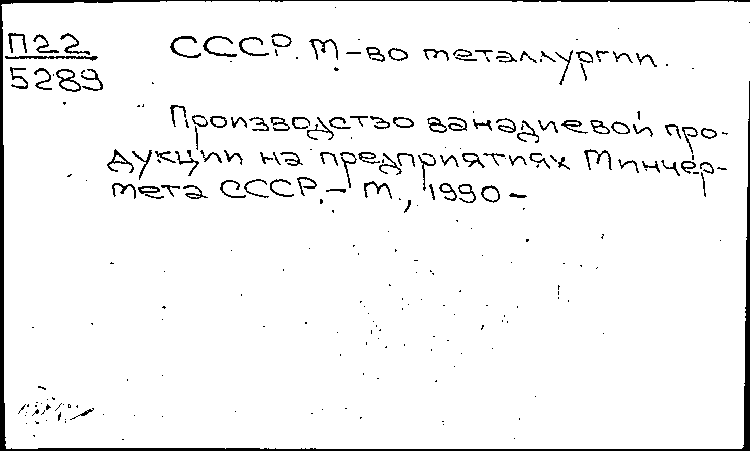 П22 СССР. М-во металлургии.
5289
Производство ванадиевой про-
дукции на предприятиях Минчер-
мета СССР.- М., 1990-